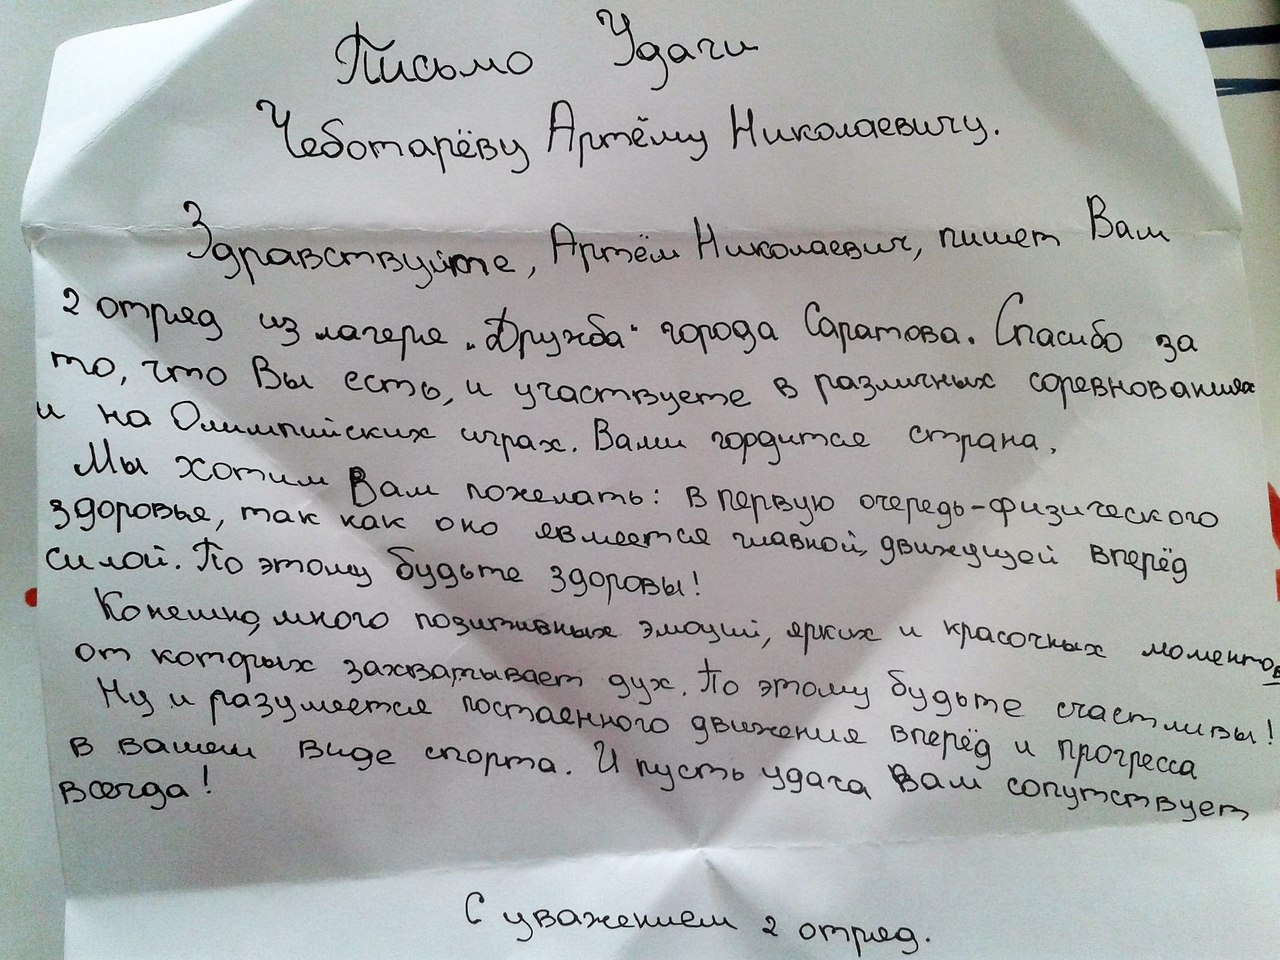 Письмо Удачи
Чеботарёву Артёму Николаевичу.
Здравствуйте, Артём Николаевич, пишет Вам
2 отряд из лагеря "Дружба" города Саратова. Спасибо за
то, что Вы есть, и участвуете в различных соревнованиях
и на Олимпийских играх. Вами гордится страна.
Мы хотим Вам пожелать: в первую очередь-физического
здоровья, так как оно является главной, движущей вперёд
силой. По этому будьте здоровы!
Конешно, много позитивных эмоций, ярких и красочных моментов
от которых захватывает дух. По этому будьте счастливы!
Ну и разумеется постаенного движения вперёд и прогресса
в вашем виде спорта. И пусть удача Вам сопутствует
всегда!
С уважением 2 отряд.